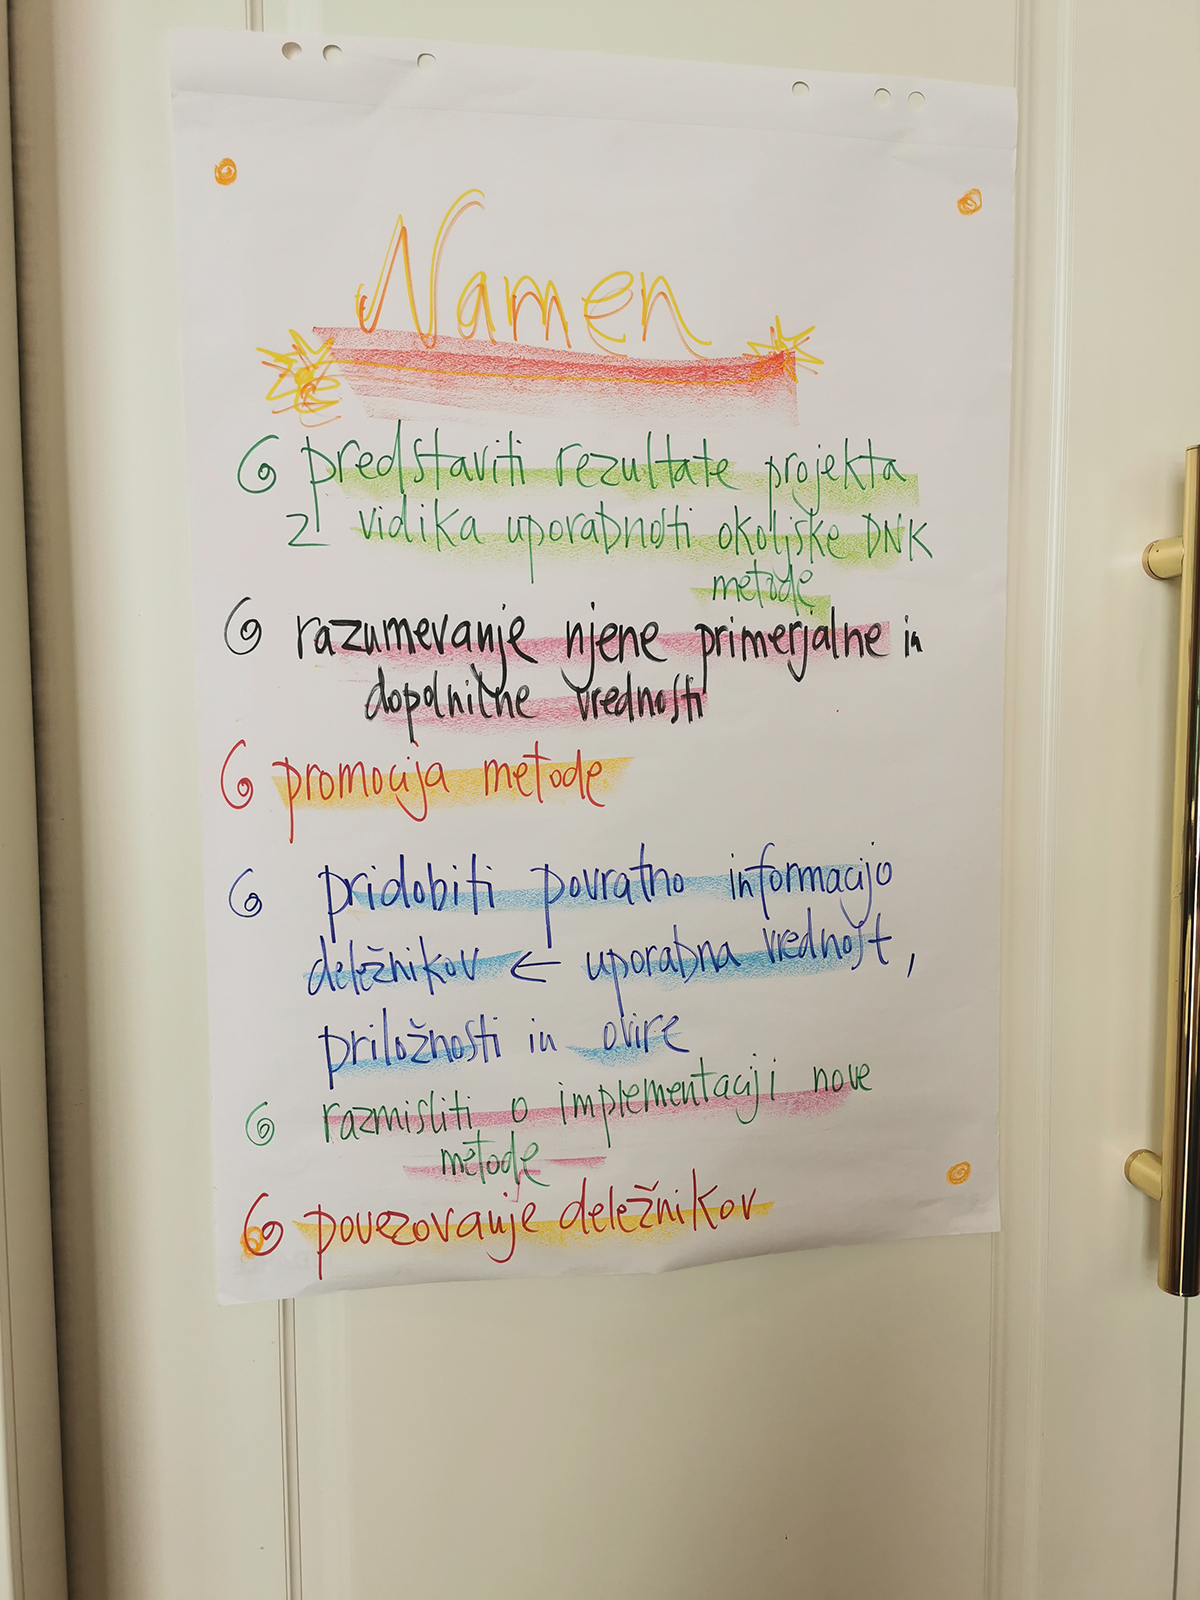 Namen
predstaviti rezultate projekta
z vidika uporabnosti okoljske DNK
metode
razumevanje njene primerjalne in
dopolnilne vrednosti
promocija metode
pridobiti povratno informacijo
deležnikov ← uporabna vrednost,
priložnosti in ovire
razmisliti o implementaciji nove
metode
povezovanje deležnikov